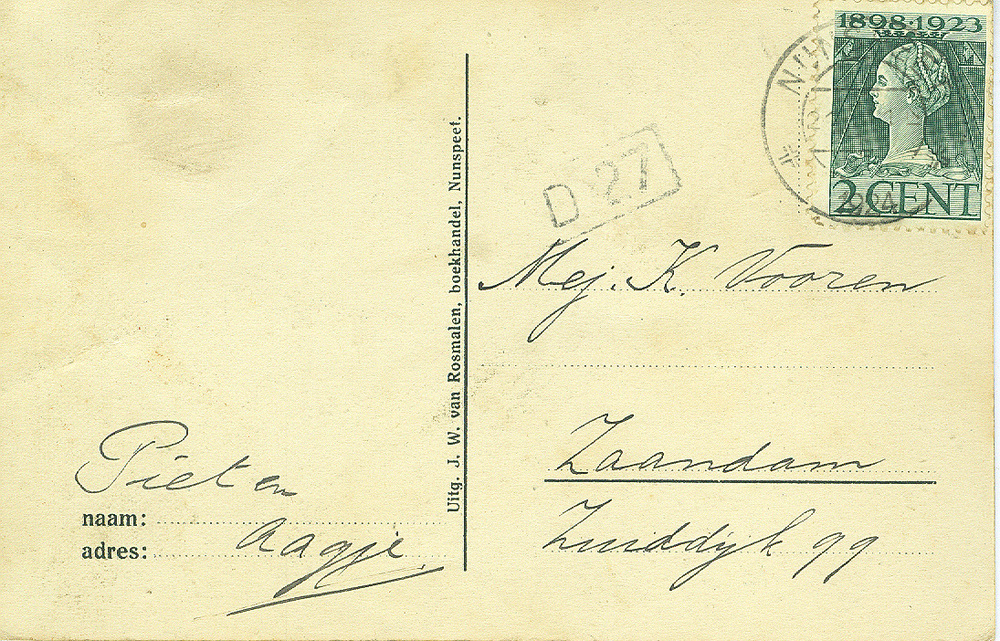 1898·1923
2 CENT
1924
D 27
Mej. K. Vooren
Zaandam
Zuiddijk 99
Uitg. J. W. van Rosmalen, boekhandel, Nunspeet.
Piet en
naam:
Aagje
adres: